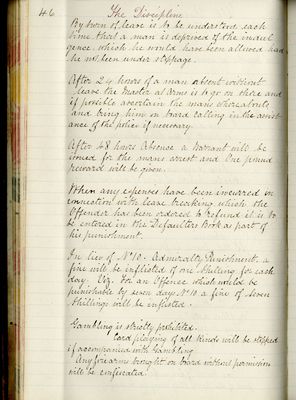 46
The Discipline
By turn of leave is to be understood each
time that a man is deprived of the indul
gence which he would have been allowed had
he not been under stoppage.
After 24 hours of a man absent without
leave the Master at Arms is to go on shore and
if possible ascertain the mans whereabouts
and bring him on board calling in the assist
ance of the police if necessary.
After 48 hours Absence a Warrant will be
issued for the mans arrest and One pound
reward will be given.
When any expenses have been incurred in
connection with leave breaking which the
Offender has been ordered to refund it is to
be entered in the Defaulters Book as part of
his punishment.
In lieu of No 10. Admiralty Punishment, a
fine will be inflicted of one Shilling for each
day. Viz. For an Offence which would be
punishable by seven days No 10 a fine of Seven
Shillings will be inflicted.
Gambling is strictly prohibited.
Card playing of all kinds will be stopped
if accompanied with Gambling
Any firearms brought on board without permission
will be confiscated.